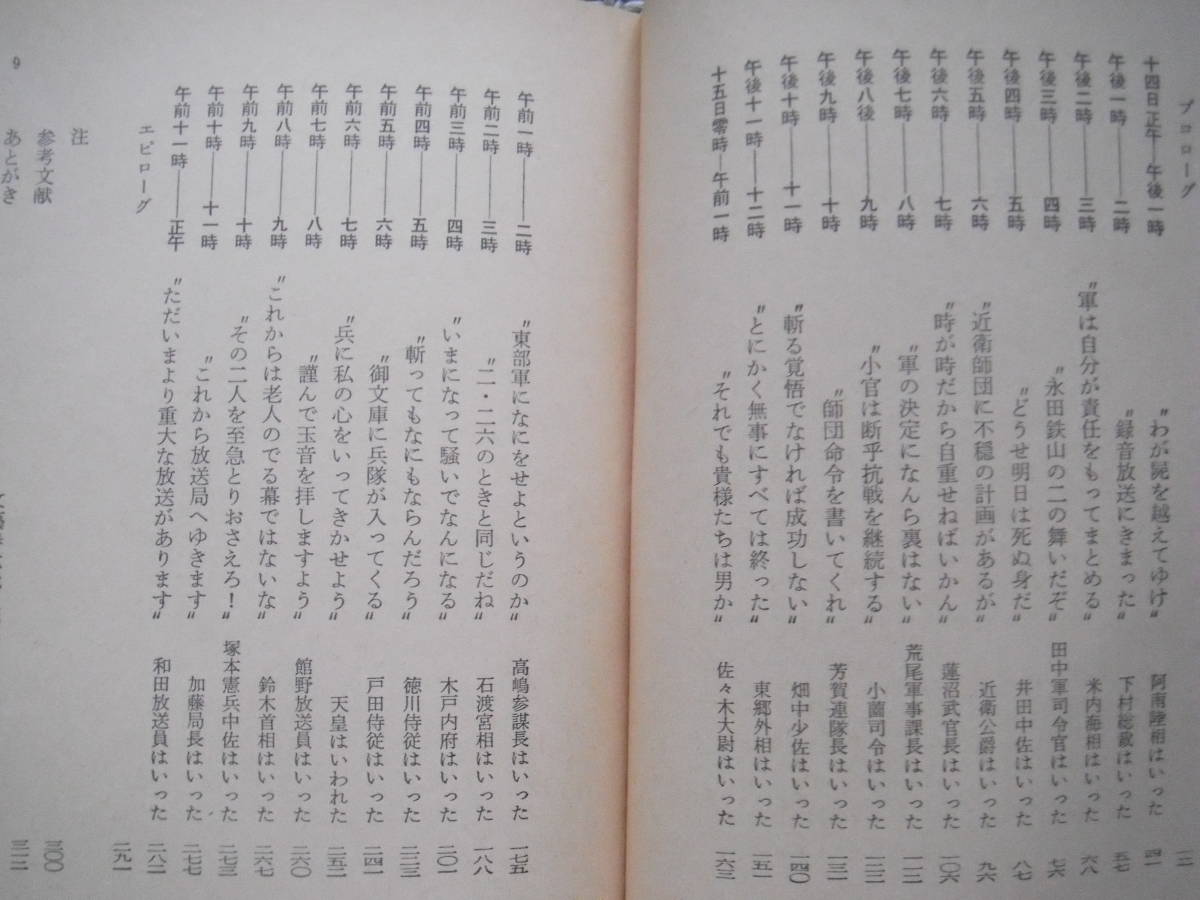 プロローグ 一二
十四日正午―午後一時 〝わが屍を越えてゆけ〟 阿南陸相はいった 四一
午後一時――二時 〝録音放送にきまった〟 下村総裁はいった 五七
午後二時――三時 〝軍は自分が責任をもってまとめる〟 米内海相はいった 六八
午後三時――四時 〝永田鉄山の二の舞いだぞ〟 田中軍司令官はいった 七六
午後四時――五時 〝どうせ明日は死ぬ身だ〟 井田中佐はいった 八七
午後五時――六時 〝近衛師団に不穏の計画があるが〟 近衛公爵はいった 九六
午後六時――七時 〝時が時だから自重せねばいかん〟 蓮沼武官長はいった 一〇六
午後七時――八時 〝軍の決定になんら裏はない〟 荒尾軍事課長はいった 一一二
午後八後――九時 〝小官は断乎抗戦を継続する〟 小薗司令はいった 一二二
午後九時――十時 〝師団命令を書いてくれ〟 芳賀連隊長はいった 一三一
午後十時――十一時 〝斬る覚悟でなければ成功しない〟 畑中少佐はいった 一四〇
午後十一時――十二時 〝とにかく無事にすべては終った〟 東郷外相はいった 一五一
十五日零時―午前一時 〝それでも貴様たちは男か〟 佐々木大尉はいった 一六三
午前一時――二時 〝東部軍になにをせよというのか〟 高嶋参謀長はいった 一七五
午前二時――三時 〝二・二六のときと同じだね〟 石渡宮相はいった 一八八
午前三時――四時 〝いまになって騒いでなんになる〟 木戸内府はいった 二〇一
午前四時――五時 〝斬ってもなにもならんだろう〟 徳川侍従はいった 二二三
午前五時――六時 〝御文庫に兵隊が入ってくる〟 戸田侍従はいった 二四一
午前六時――七時 〝兵に私の心をいってきかせよう〟 天皇はいわれた 二五二
午前七時――八時 〝謹んで玉音を拝しますよう〟 館野放送員はいった 二六〇
午前八時――九時 〝これからは老人のでる幕ではないな〟 鈴木首相はいった 二六七
午前九時――十時 〝その二人を至急とりおさえろ！〟 塚本憲兵中佐はいった 二七三
午前十時――十一時 〝これから放送局へゆきます〟 加藤局長はいった 二七七
午前十一時――正午 〝ただいまより重大な放送があります〟 和田放送員はいった 二八二
エピローグ 二九一
注
参考文献 三〇〇
あとがき
9